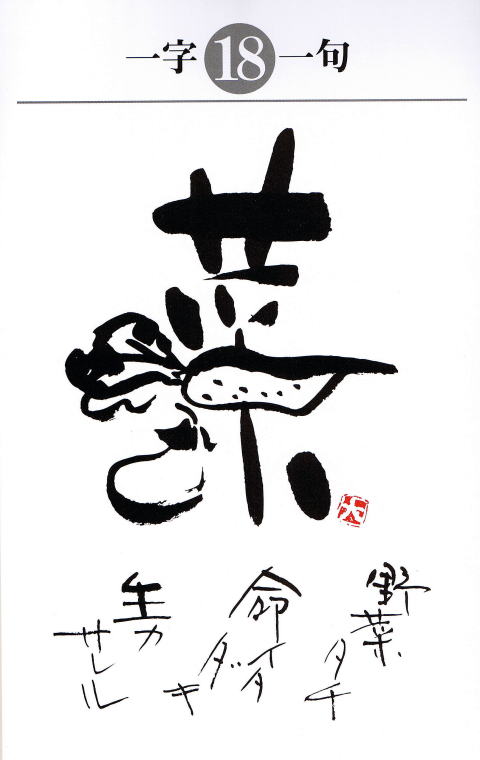 一字18一句
菜
野菜
タチ
命イタ
ダキ
生カ
サレル